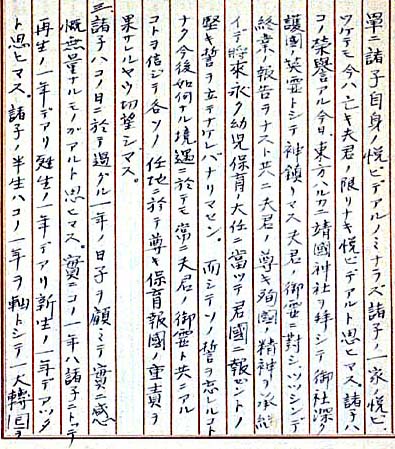 単ニ諸子自身ノ悦ビデアルノミナラズ諸子ノ一家ノ悦ビ、
ツケテモ今ハ亡キ夫君ノ限リナキ悦ビデアルト思ヒマス。諸子ハ
コノ栄誉アル今日、東方ハルカニ靖國神社ヲ拝シテ御社深ク
護國ノ英霊トシテ神鎮リマス夫君ノ御霊ニ対シツツシンデ
終業ノ報告ヲナスト共ニ夫君ノ尊キ殉國ノ精神ヲ承継
イデ将來永ク幼児保育ノ大任ニ当ツテ君國ニ報ゼントノ
堅キ誓ヲ立テナケレバナリマセン。而シテソノ誓ヲ忘レルコト
ナク今後如何ナル境遇ニ於テモ常ニ夫君ノ御霊ト共ニアル
コトヲ信ジテ各〻ノ任地ニ於テ尊キ保育報國ノ重責ヲ
果サレルヤウ切望シマス。
三、諸子ハコノ日ニ於テ過グル一年ノ日子ヲ顧ミテ實ニ感
慨無量ナルモノガアルト思ヒマス。實ニコノ一年ハ諸子ニトッテ
再生ノ一年デアリ甦生ノ一年デアリ新生ノ一年デアッタ
ト思ヒマス。諸子ノ半生ハコノ一年ヲ軸トシテ一大轉回ヲ